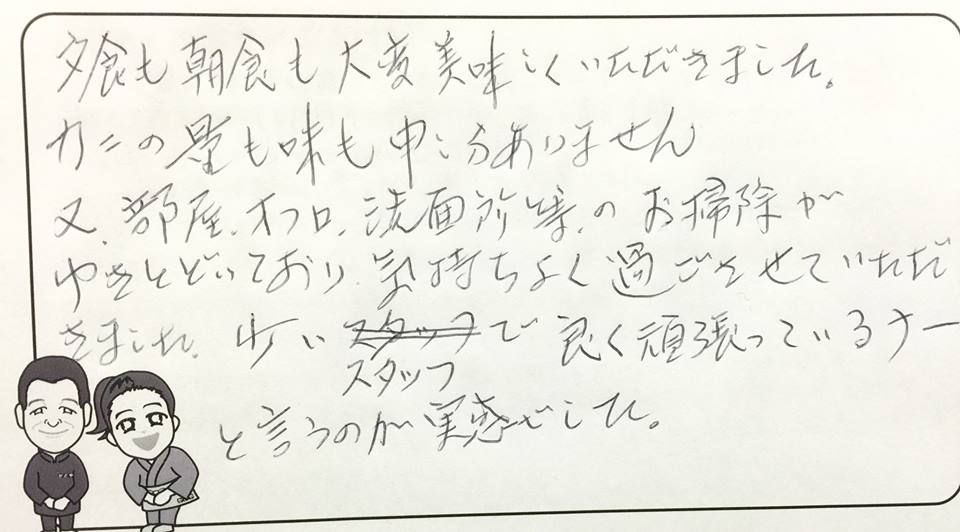 夕食も朝食も大変美味しくいただきました。
カニの量も味も申し分ありません
又、部屋、オフロ、洗面所等、のお掃除が
ゆきとどいており、気持ちよく過ごさせていただ
きました。少い スタッフ で 良く頑張っているナー
スタッフ
と言うのが実感でした。